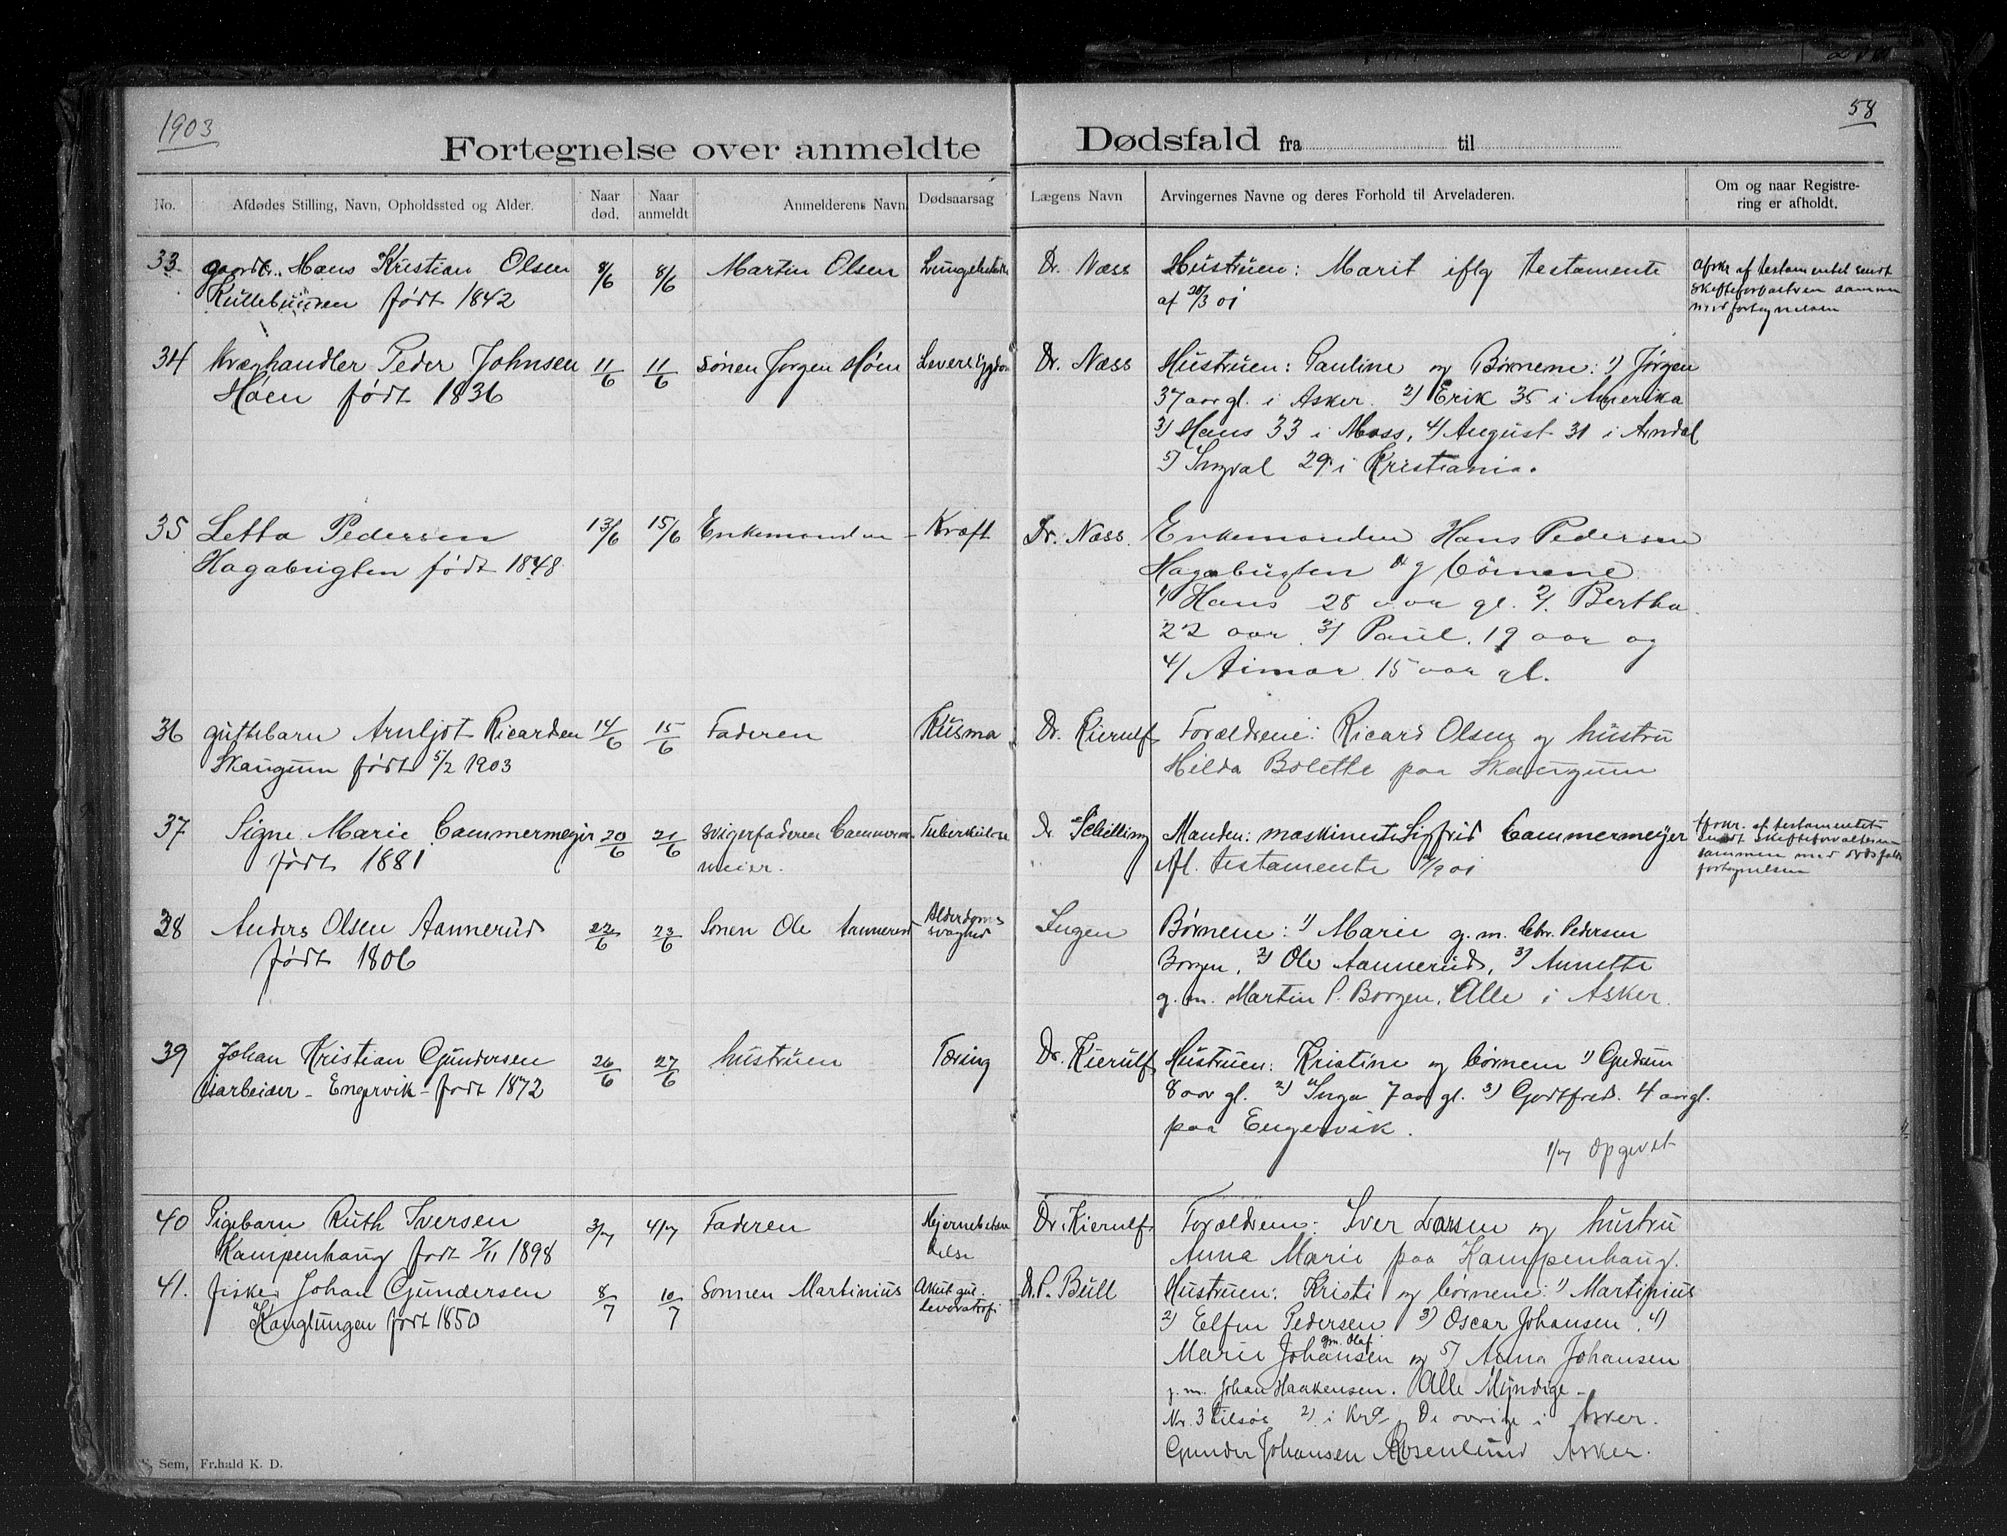 1903
58
Fortegnelse over anmeldte Dødsfald fra til
No. Afdødes Stilling, Navn, Opholdssted og Alder. Naar død. Naar anmeldt Anmelderens Navn Dødsaarsag Lægens Navn Arvingernes Navne og deres Forhold til Arveladeren. Om og naar Registrering er afholdt.
33. gaardbr. Hans Kristian Olsen 8/6 8/6 Martin Olsen Dr. Næss Hustruen: Marit iflg testamente Afskr af testamentet sendt
født 1842 af 28/3 01 skifteforvalteren sammen
med fortegnelsen
34 Kræghandler Peder Johnsen 11/6 11/6 sønen Jørgen Høen Leversygdom Dr. Næss Hustruen: Pauline og Børnene: 1) Jørgen
Høen født 1836 37 aar gl. i Asker. 2) Erik 35 i Amerika
3) Hans 33 i Moss, 4) August 31 i Arndal
5) Ingval 29 i Kristiania.
35 Letta Pedersen 13/6 15/6 Enkemanden Kræft Dr. Næss. Enkemanden Hans Pedersen
Hagabugten født 1848 Hagabugten og børnene
1/ Hans 28 aar gl. 2/. Bertha
22 aar 3/ Paul. 19 aar og
4/ Aimar 15 aar gl.
36 guttebarn Arnljot Ricardsen 14/6 15/6 Faderen Dr. Kierulf Forældrene: Ricard Olsen og hustru
Skaugum født 5/2 1903 Hilda Bolette paa Skaugum
37 Signe Marie Cammermeyer 20/6 21/6 svigerfaderen Cammermeier. Tuberkulose Dr Schilling Manden: maskinist Sigfrid Cammermeyer Afskr. af testamentet
født 1881 Afl. testamente /9 01 sendt skifteforvalteren
sammen med dødsfalds
fortegnelsen
38 Anders Olsen Aannerud 22/6 23/6 Sønen Ole Aannerud Alderdoms Ingen Børnene: 1) Marie g.m. Chr. Pedersen
født 1806 svaghed Borgen, 2) Ole Aannerud, 3) Annette
g. m. Martin P. Borgen. Alle i Asker.
39 Johan Kristian Gundersen 26/6 27/6 hustruen Tæring Dr. Kierulf Hustruen: Kristine og børnene 1) Gudrun
isarbeider - Engervik - født 1872 8 aar gl. 2) Inga 7 aar gl. 3) Godtfred. 4 aar gl.
paa Engervik.
1/7 Opgivet
40 Pigebarn Ruth Iversen 3/7 4/7 Faderen Dr. Kierulf Forældrene: Iver Larsen og hustru
Kampenhaug født 7/11 1898 Anna Marie paa Kampenhaug.
41. fisker Johan Gundersen 8/7 10/7 Sønnen Martinius Akut gul. Dr. P. Bull Hustruen: Kristi og børnene: 1) Martinius
Langlungen født 1850 leveratrofi 2) Elfin Pedersen 3) Oscar Johansen 4)
Marie Johansen gm. Olaf og 5) Anna Johansen
g. m. Johan Haakensen. Alle Myndige -
Nr. 3 tilsøs 2) i Kra De øvrige i Asker.
Gunder Johansen Rosenlund Asker.
Sem, Fr.hald K. D.